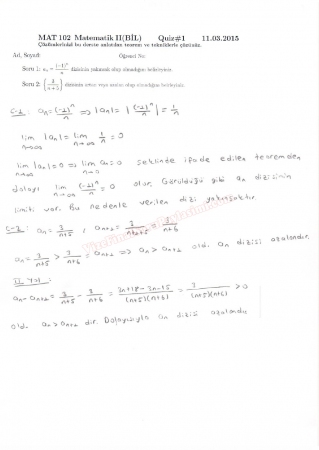 MAT 102 Matematik II(BİL) Quiz#1 11.03.2015
Çözümlerinizi bu derste anlatılan teorem ve tekniklerle çözünüz.
Ad, Soyad: Öğrenci No:
Soru 1: aₙ = (-1)ⁿ/n dizisinin yakınsak olup olmadığını belirleyiniz.
Soru 2: {3/(n+5)} dizisinin artan veya azalan olup olmadığını belirleyiniz.
C-1: aₙ = (-1)ⁿ/n ⇒ |aₙ| = |(-1)ⁿ/n| = 1/n
lim n→∞ |aₙ| = lim n→∞ 1/n = 0
lim n→∞ |aₙ| = 0 ⇒ lim n→∞ aₙ = 0 şeklinde ifade edilen teoremden
dolayı lim n→∞ (-1)ⁿ/n = 0 olur. Görüldüğü gibi aₙ dizisinin
limiti var. Bu nedenle verilen dizi yakınsaktır.
C-2: aₙ = 3/(n+5), aₙ₊₁ = 3/(n+1+5) = 3/(n+6)
aₙ = 3/(n+5) > 3/(n+6) = aₙ₊₁ ⇒ aₙ > aₙ₊₁ old. aₙ dizisi azalandır.
II. Yol:
aₙ - aₙ₊₁ = 3/(n+5) - 3/(n+6) = (3n+18-3n-15)/((n+5)(n+6)) = 3/((n+5)(n+6)) > 0
old. aₙ > aₙ₊₁ dir. Dolayısıyla aₙ dizisi azalandır